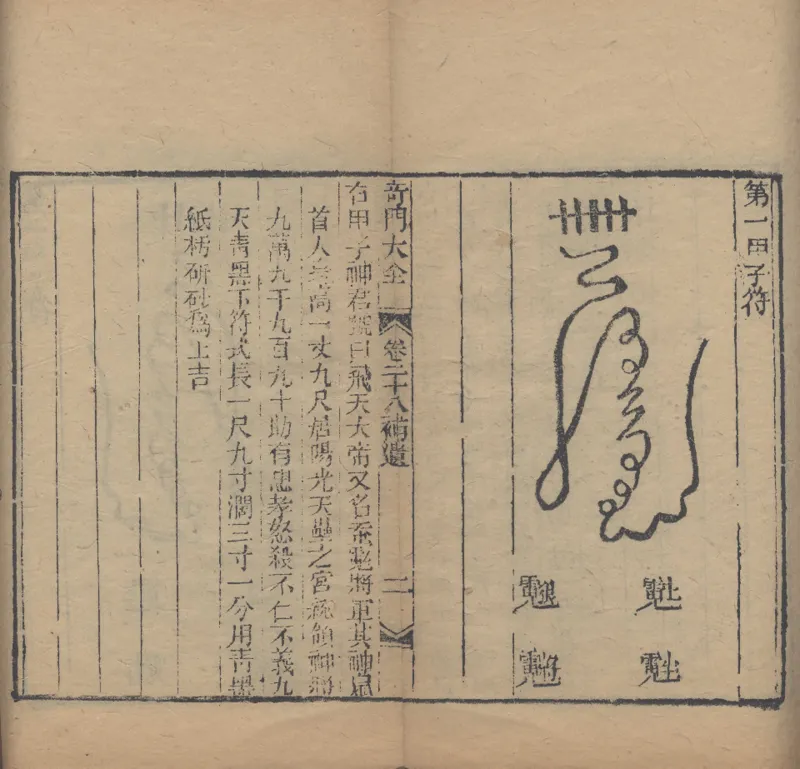 第一甲子符
奇門大全
卷二十八補遺
二
右甲子神君號曰飛天大帝又名 將軍其神
首人 高一丈九尺居陽光天 之宮統領神將
九萬九千九百九十助有忠孝怒殺不仁不義九
天青黑下符式長一尺九寸濶三寸一分用青墨
紙 研 為上吉